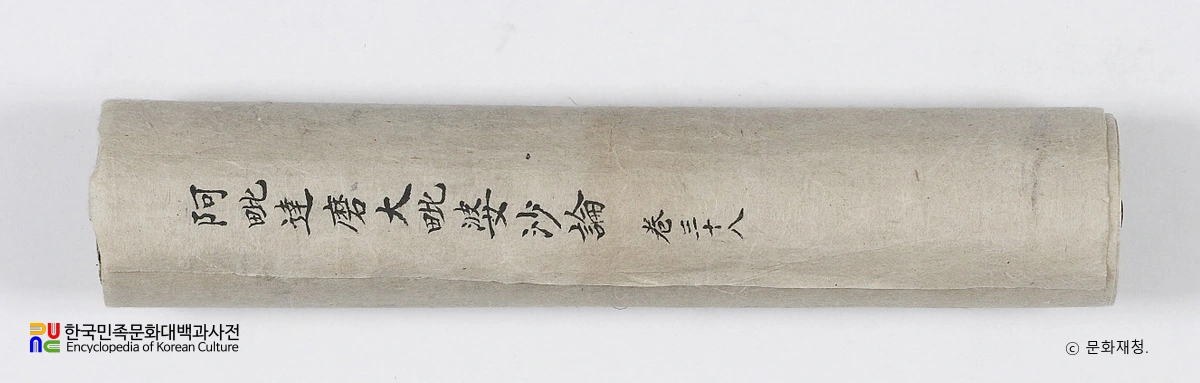 阿毗達磨大毗婆沙論 卷三十八
한국민족문화대백과사전
Encyclopedia of Korean Culture
ⓒ 문화재청.